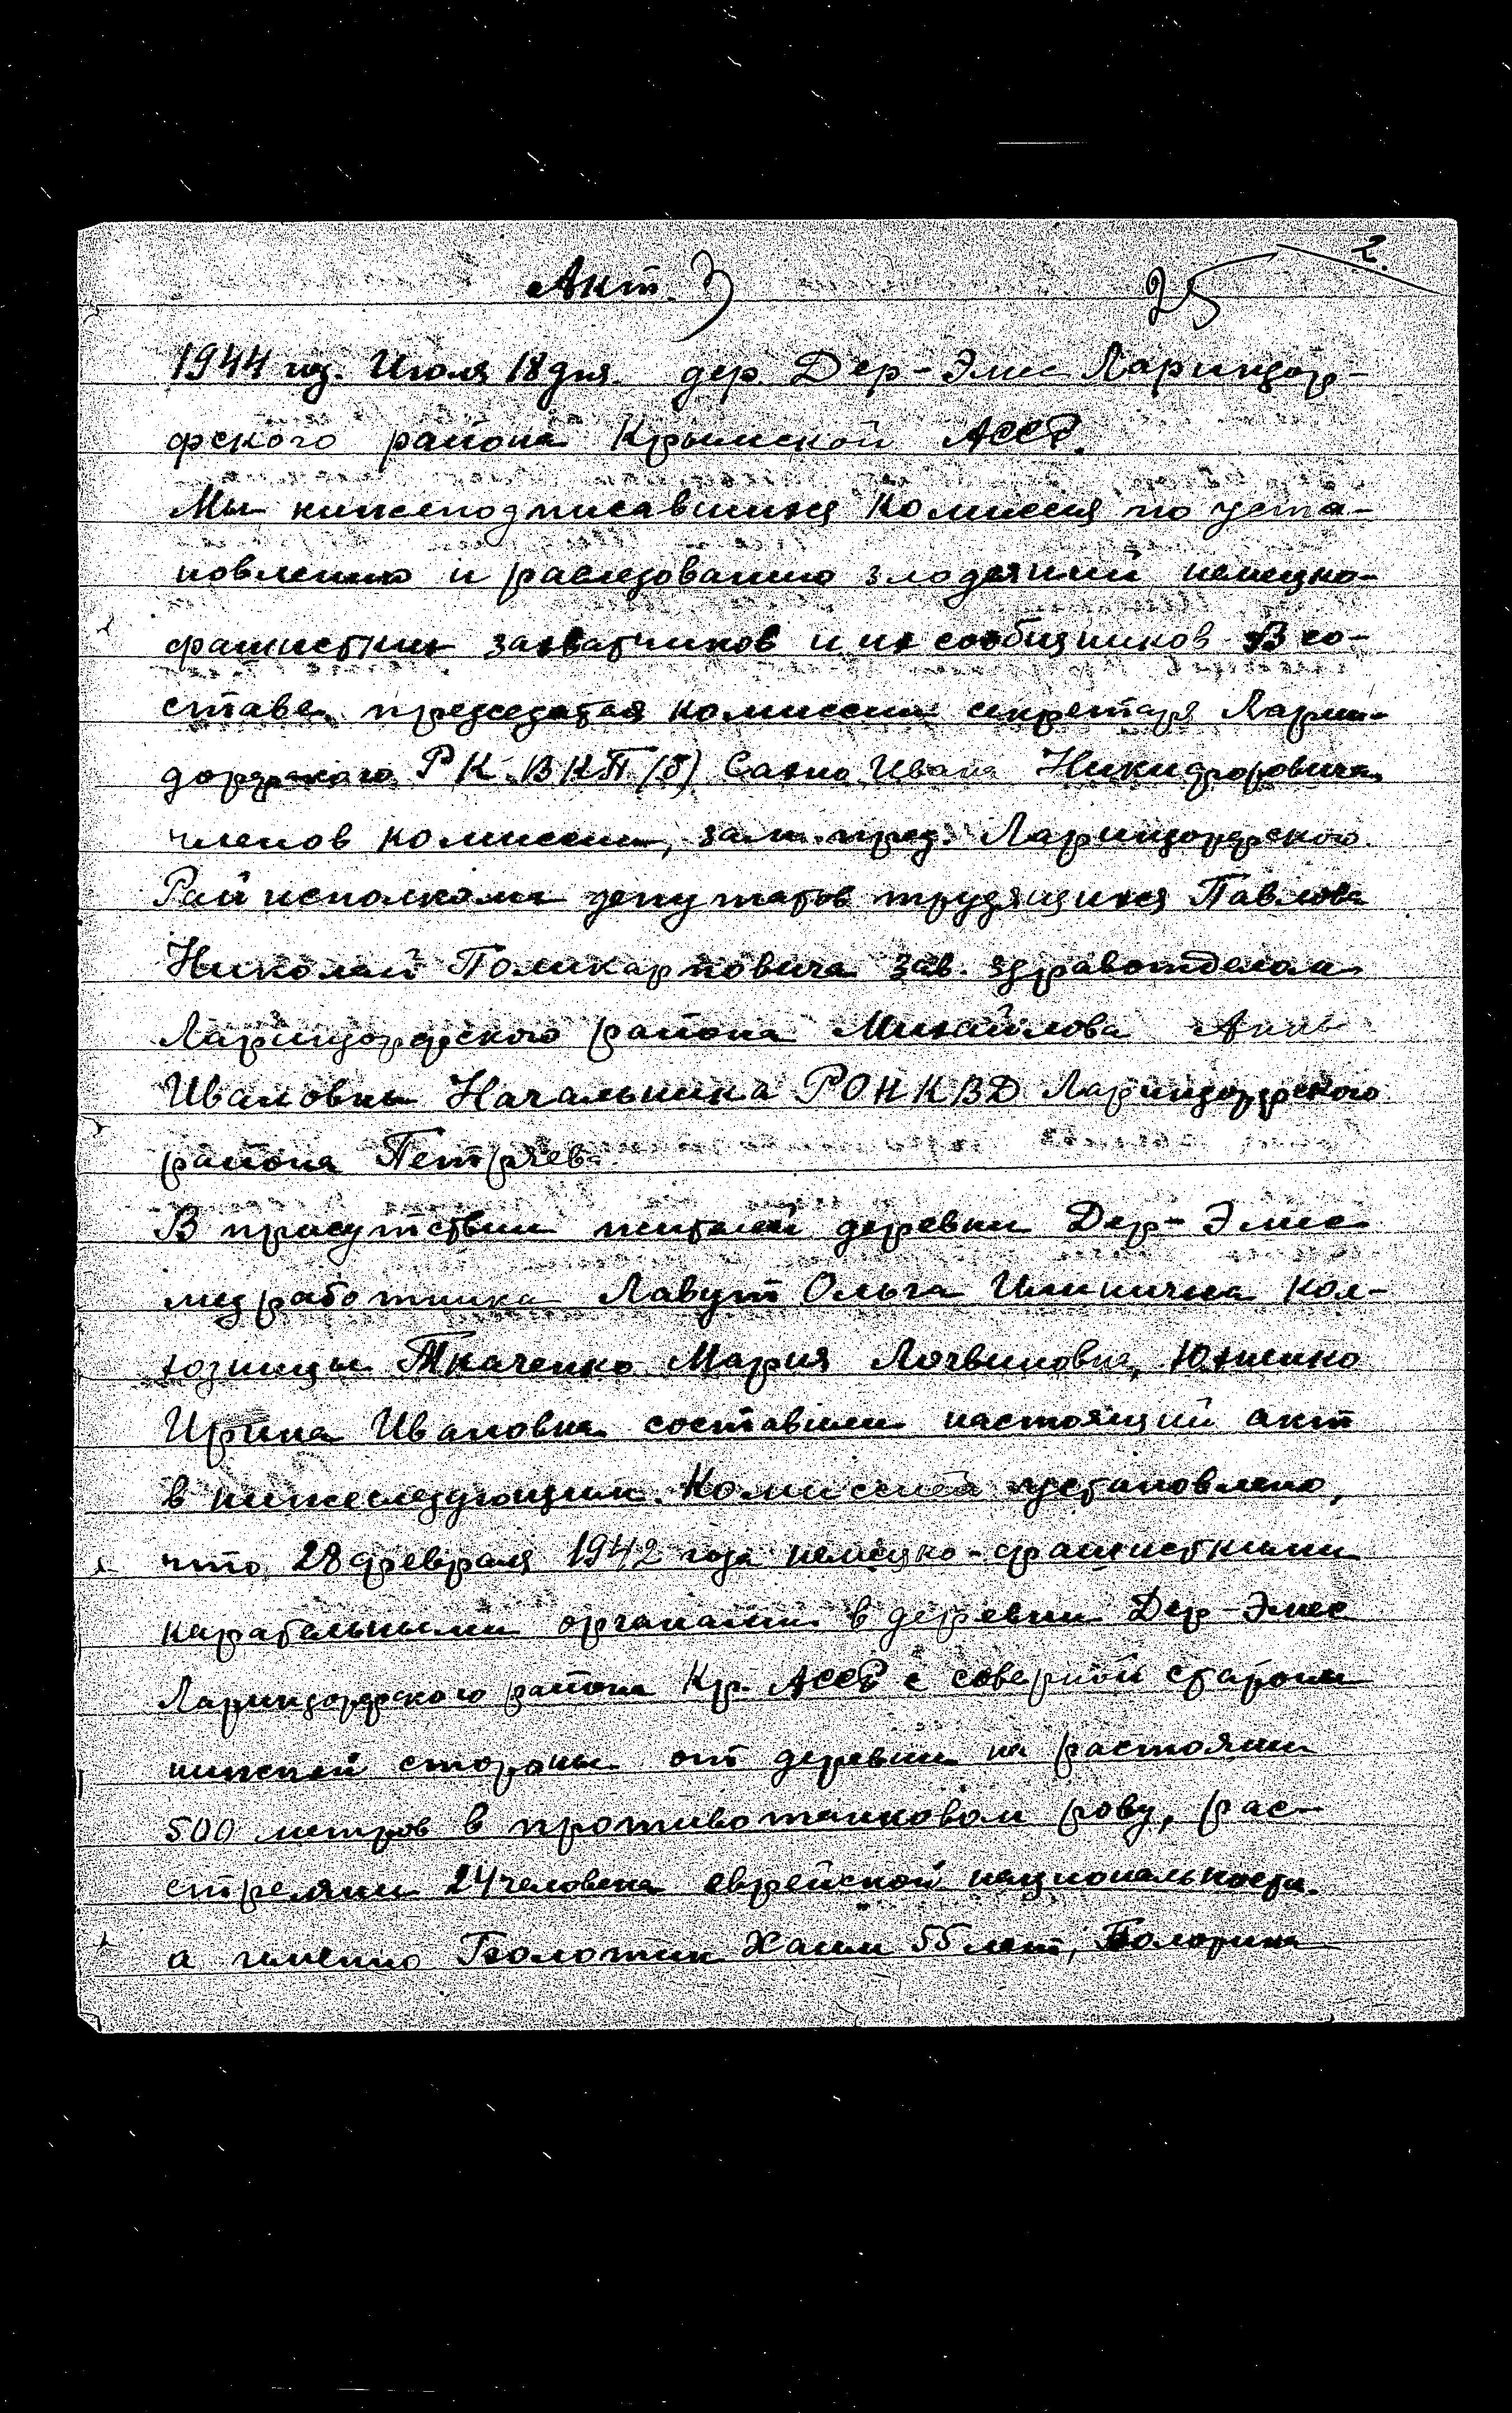 2.
Акт. 3 25
1944 год. Июля 18 дня. дер. Дер-Эмес Лариндор-
фского района Крымской АССР.
Мы нижеподписавшияся Комиссия по уста-
новлению и раследованию злодеяний немецко-
фашистких захватчиков и их сообщников В со-
ставе председателя комиссии секретаря Ларин-
дорфского РК ВКП(б) Сахно Ивана Никифоровича,
членов комиссии, зам. пред. Лариндорфского
Райисполкома депутатов трудящихся Павлова
Николай Поликарповича зав. здравотделом
Лариндорфского района Михайлова Анны
Ивановны Начальника РОНКВД Лариндорфского
района Петряева
В присутствии жителей деревни Дер-Эмес
медработника Лавут Ольга Ильинична кол-
хозницы Ткаченко Мария Логвиновна, Юхненко
Ирина Ивановна составили настоящий акт
в нижеследующим. Комиссией установлено,
что 28 февраля 1942 года немецко-фашисткими
карательными органами в деревни Дер-Эмес
Лариндорфского района Кр. АССР с северной стороны
стороны от деревни на растоянии
500 метров в противотанковом рову, рас-
стреляни 24 человека еврейской национальности.
а именно Болотин Хаим 55 лет,